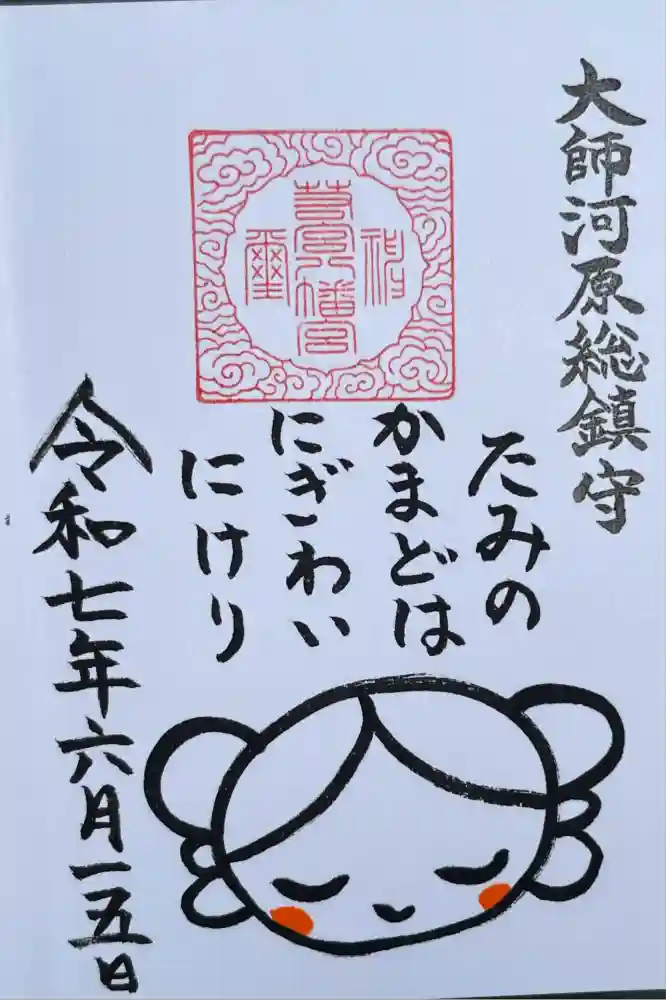 大師河原総鎮守
若宮八幡宮
たみの
かまどは
にぎわい
にけり
令和七年六月一五日